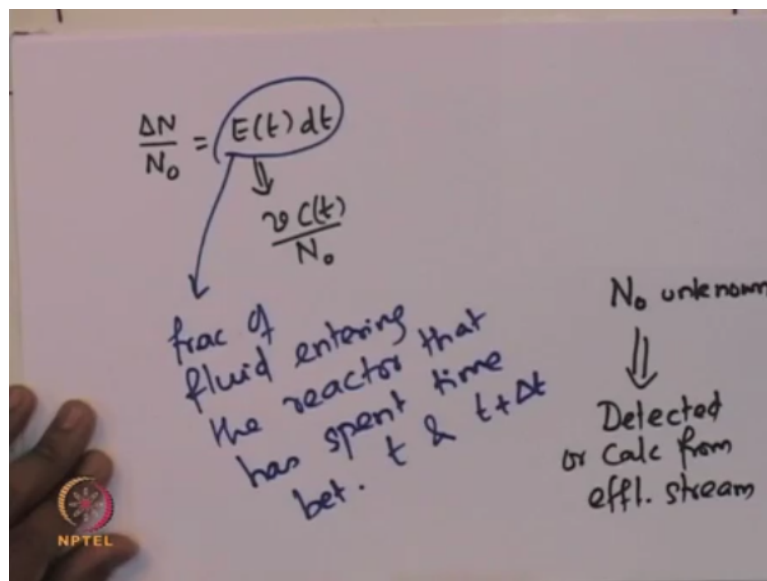 ΔN/N₀ = E(t) dt
v C(t)/N₀
frac of
fluid entering
the reactor that
has spent time
bet. t & t+Δt
N₀ unknown
Detected
or Calc from
effl. stream
NPTEL